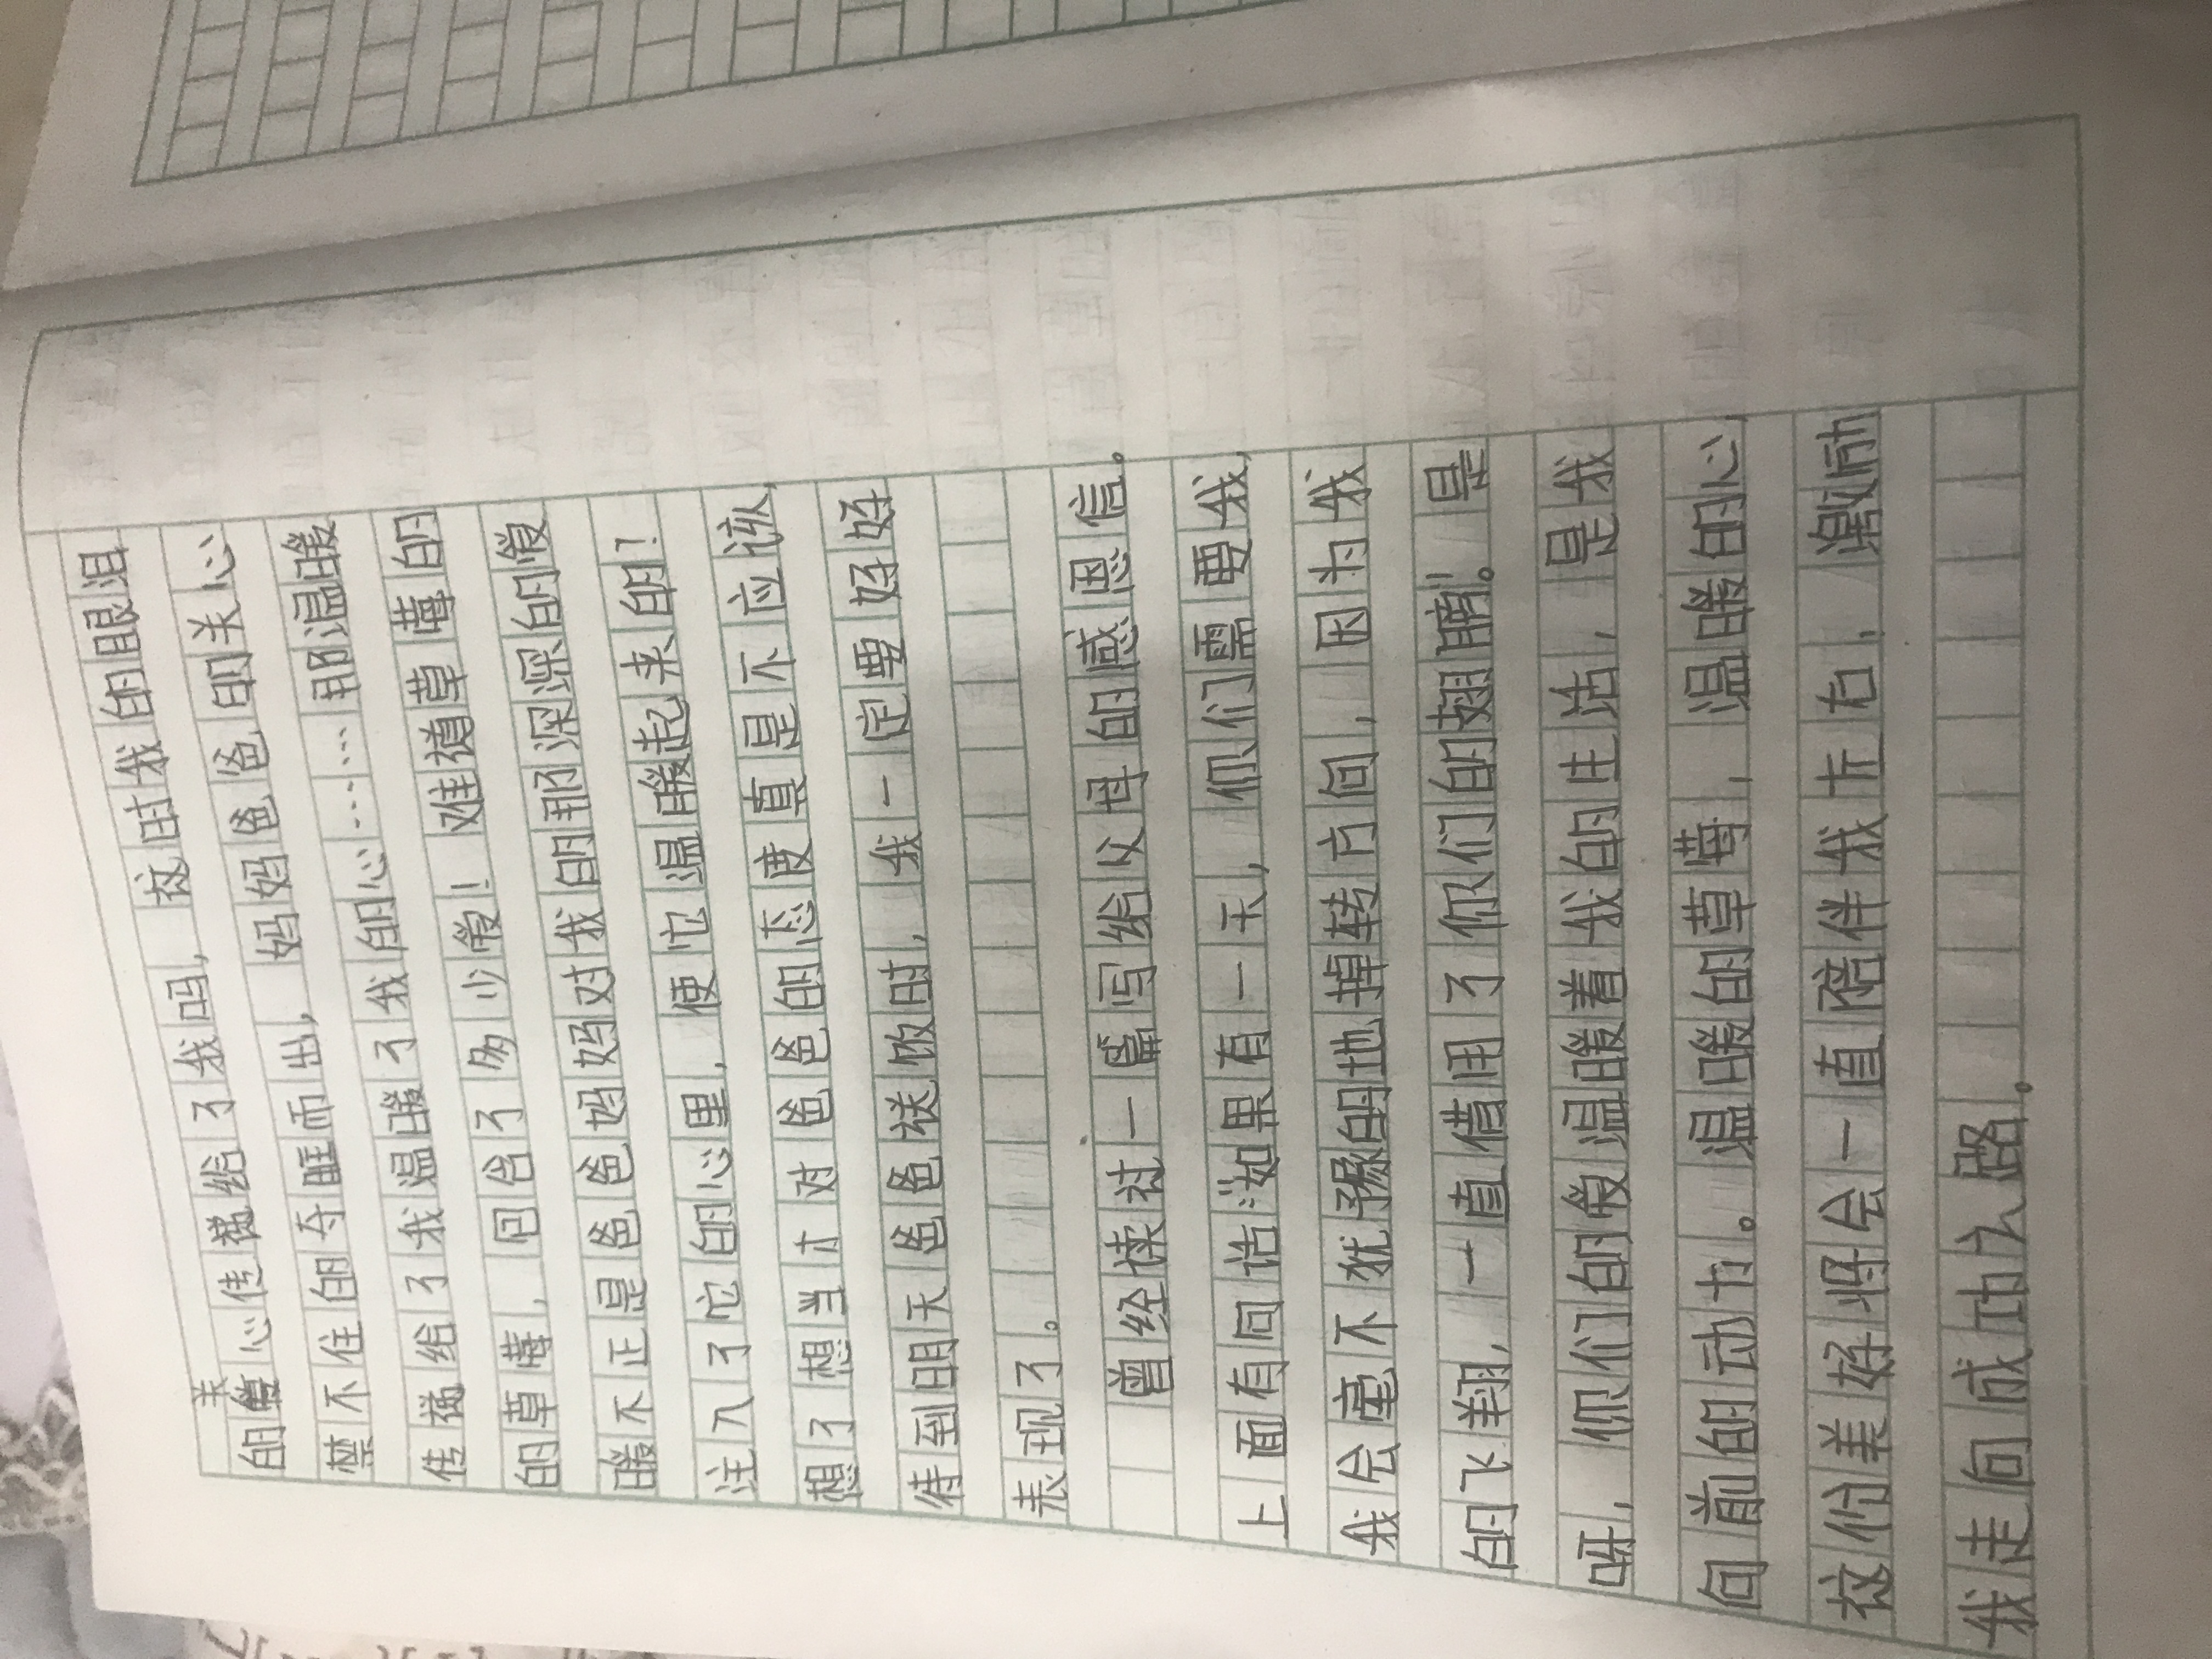 的关心传递给了我吗，这时我的眼泪
禁不住的夺眶而出，妈妈爸爸的关心
传递给了我温暖了我的心……那温暖
的草莓，包含了多少爱！难道草莓的
暖不正是爸爸妈妈对我的那深深的爱
注入了它的心里，使它温暖起来的？
想了想当才对爸爸的态度真是不应该，
待到明天爸爸送饭时，我一定要好好
表现了。
曾经读过一篇写给父母的感恩信。
上面有句话："如果有一天，你们需要我，
我会毫不犹豫的地掉转方向，因为我
的飞翔，一直借用了你们的翅膀"。是
呀，你们的爱温暖着我的生活，是我
向前的动力。温暖的草莓，温暖的心，
这份美好将会一直陪伴我左右，激励
我走向成功之路。